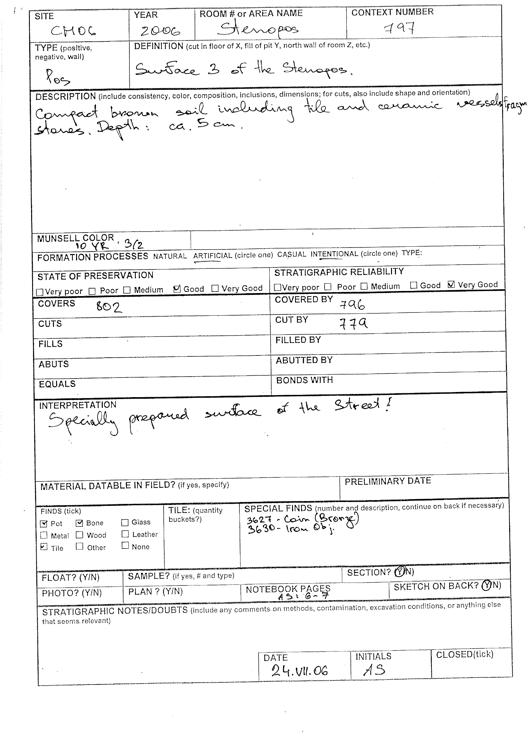 SITE YEAR ROOM # or AREA NAME CONTEXT NUMBER
CH06 2006 Stenopos 797
TYPE (positive, negative, wall) DEFINITION (cut in floor of X, fill of pit Y, north wall of room Z, etc.)
Pos Surface 3 of the Stenopos.
DESCRIPTION (include consistency, color, composition, inclusions, dimensions; for cuts, also include shape and orientation)
Compact brown soil including tile and ceramic vessels fragm
stones. Depth: ca. 5 cm.
MUNSELL COLOR
10 YR 3/2
FORMATION PROCESSES NATURAL ARTIFICIAL (circle one) CASUAL INTENTIONAL (circle one) TYPE:
STATE OF PRESERVATION STRATIGRAPHIC RELIABILITY
☐Very poor ☐ Poor ☐ Medium ☑ Good ☐ Very Good ☐Very poor ☐ Poor ☐ Medium ☐ Good ☑ Very Good
COVERS 802 COVERED BY 796
CUTS CUT BY 779
FILLS FILLED BY
ABUTS ABUTTED BY
EQUALS BONDS WITH
INTERPRETATION
Specially prepared surface of the Street!
MATERIAL DATABLE IN FIELD? (if yes, specify) PRELIMINARY DATE
FINDS (tick) TILE: (quantity buckets?) SPECIAL FINDS (number and description, continue on back if necessary)
☑ Pot ☑ Bone ☐ Glass 3627 - Coin (Bronze)
☐ Metal ☐ Wood ☐ Leather 3630 - Iron Obj.
☑ Tile ☐ Other ☐ None
FLOAT? (Y/N) SAMPLE? (if yes, # and type) SECTION? (Y/N)
PHOTO? (Y/N) PLAN ? (Y/N) NOTEBOOK PAGES SKETCH ON BACK? (Y/N)
AS: 6-7
STRATIGRAPHIC NOTES/DOUBTS (include any comments on methods, contamination, excavation conditions, or anything else
that seems relevant)
DATE INITIALS CLOSED(tick)
24.VII.06 AS